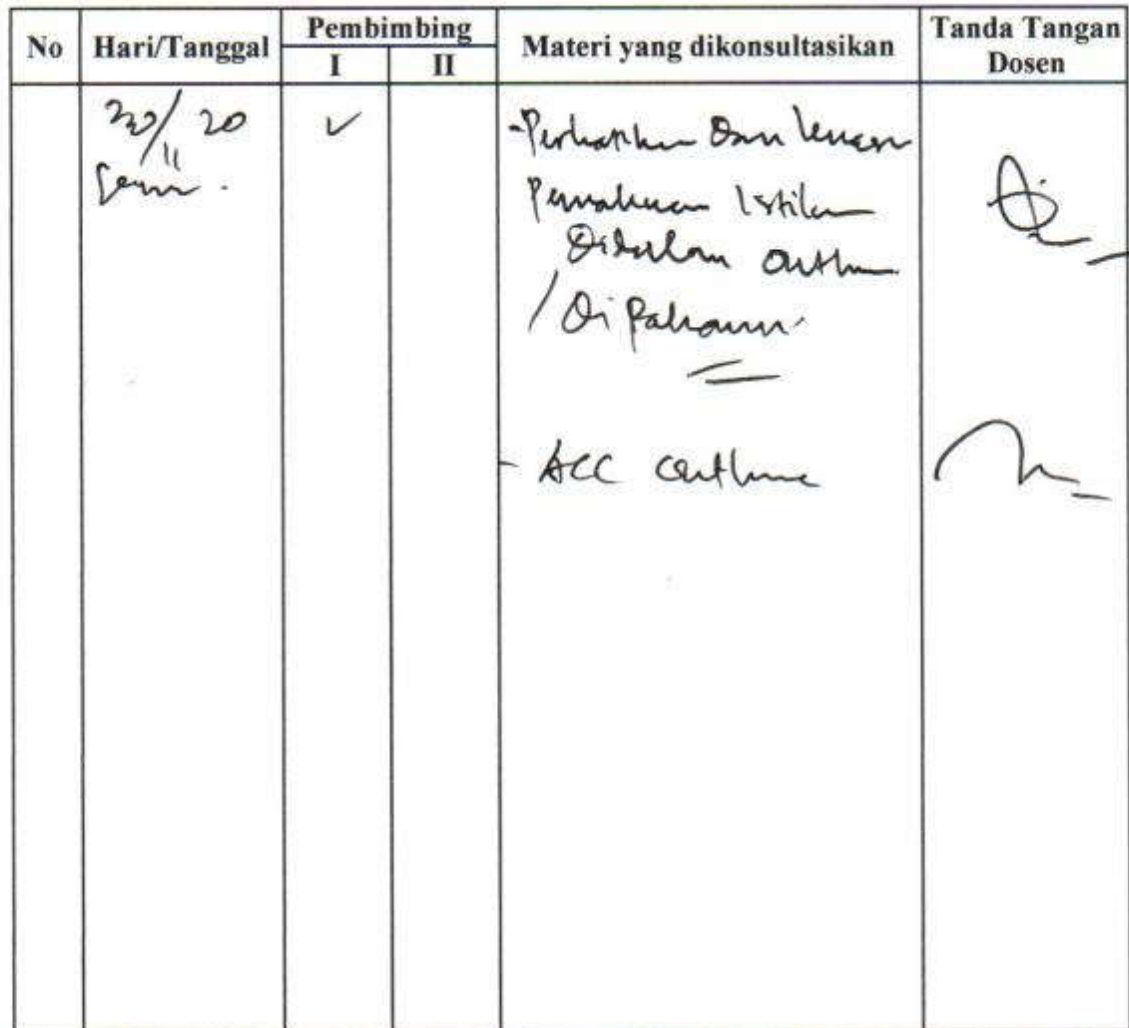 No Hari/Tanggal Pembimbing Materi yang dikonsultasikan Tanda Tangan
Dosen
I II
30/11 20
Senin.
-Perhatikan Dan
Pemakaian Istilah
Didalam Outline
/ Di Pahami
- ACC Outline